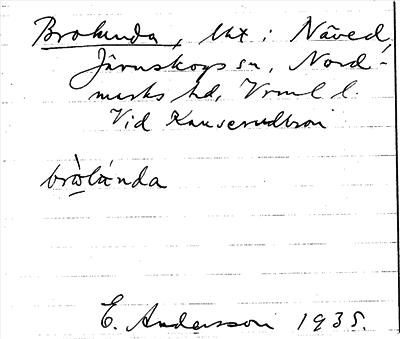 Brolunda, lht i Näved,
Järnskogs sn, Nord-
marks hd, Vrml l.
Vid Kanserudbron
bròlúnda
E. Andersson 1935.